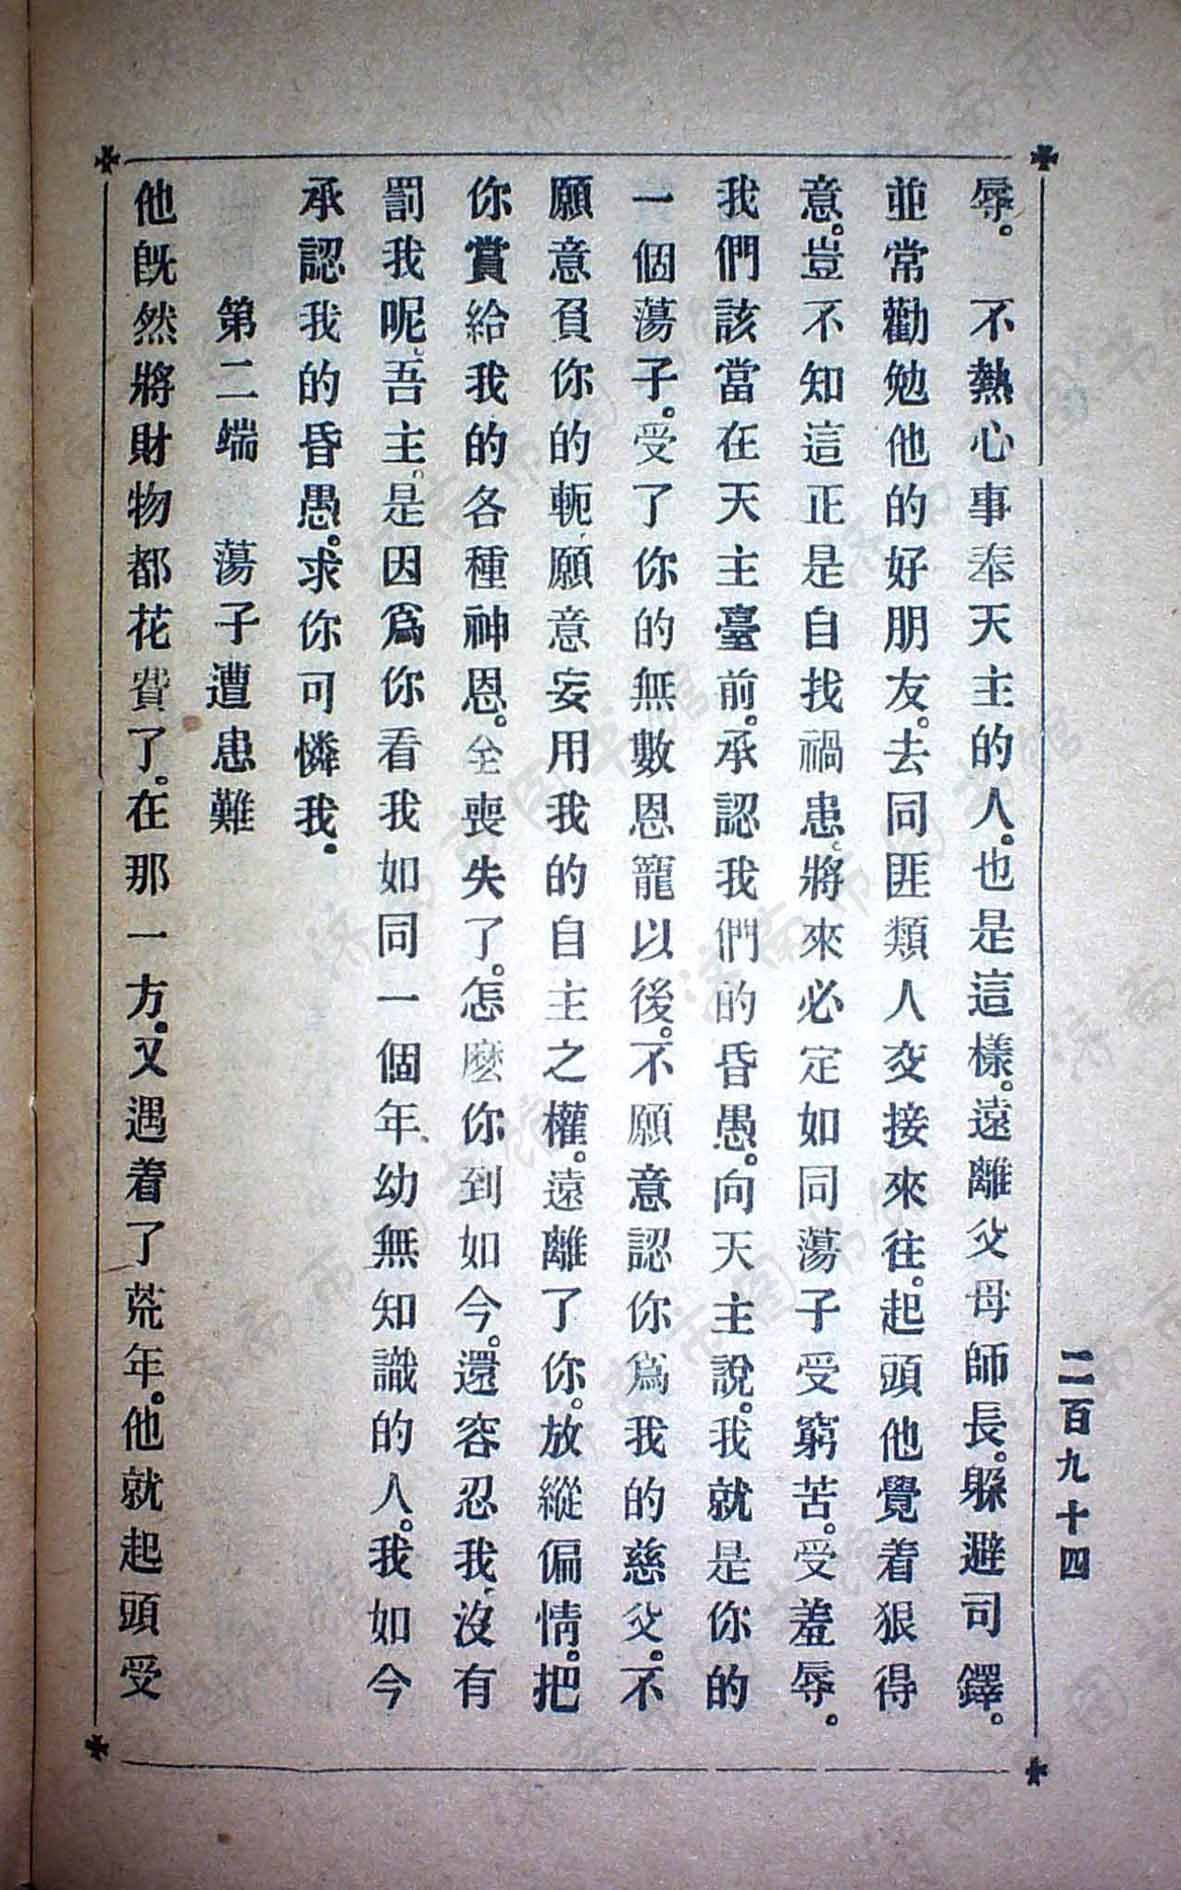 辱。不熱心事奉天主的人。也是這樣。遠離父母師長。躲避司鐸。
並常勸勉他的好朋友。去同匪類人交接來往。起頭他覺着狠得
意。豈不知這正是自找禍患。將來必定如同蕩子受窮苦。受羞辱。
我們該當在天主臺前。承認我們的昏愚。向天主說。我就是你的
一個蕩子。受了你的無數恩寵以後。不願意認你爲我的慈父。不
願意負你的軛。願意妄用我的自主之權。遠離了你。放縱偏情。把
你賞給我的各種神恩。全喪失了。怎麽你到如今。還容忍我。沒有
罰我呢。吾主。是因爲你看我如同一個年幼無知識的人。我如今
承認我的昏愚。求你可憐我。
第二端 蕩子遭患難
他旣然將財物都花費了。在那一方。又遇着了荒年。他就起頭受
二百九十四
济南市图书馆